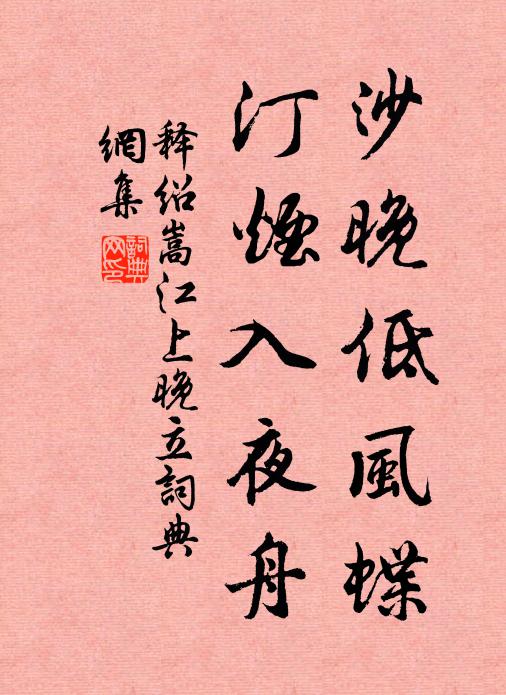 沙晚低風蝶
汀煙入夜舟
释绍嵩江上晚立詞典
網集
詞典网印